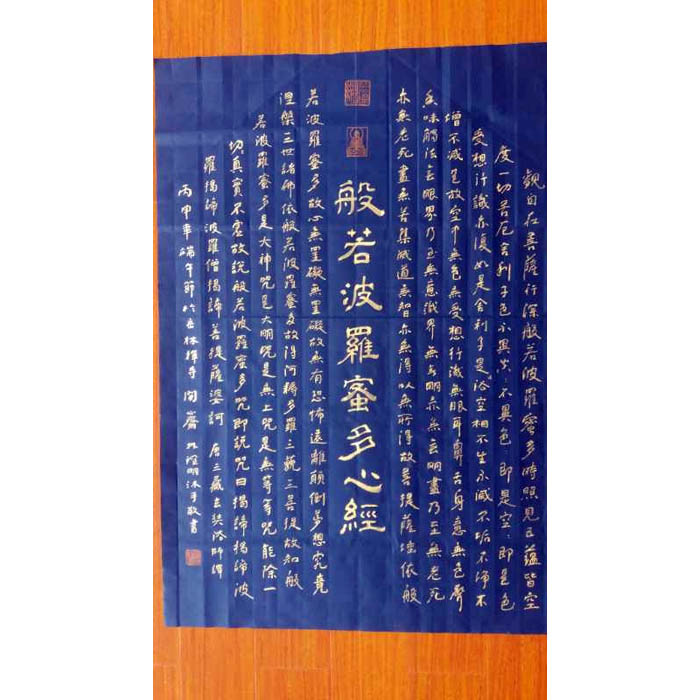 觀自在菩薩行深般若波羅蜜多時照見五蘊皆空
度一切苦厄舍利子色不異空:不異色:即是空:即是色
受想行識亦復如是舍利子是諸空相不生不滅不垢不淨不
增不減是故空中無色無受想行識無眼耳鼻舌身意無色聲
香味觸法無眼界乃至無意識界無無明亦無無明盡乃至無老死
亦無老死盡無苦集滅道無智亦無得以無所得故菩提薩埵依般
般若波羅蜜多心經
若波羅蜜多故心無罣礙無罣礙故無有恐怖遠離顛倒夢想究竟
涅槃三世諸佛依般若波羅蜜多故得阿耨多羅三藐三菩提故知般
若波羅蜜多是大神咒是大明咒是無上咒是無等等咒能除一
切真實不虛故說般若波羅蜜多咒即說咒曰揭諦揭諦波
羅揭諦波羅僧揭諦菩提薩婆訶 唐三藏玄奘法師譯
丙申年端午節於 林禪寺 閒齋 明沐手敬書